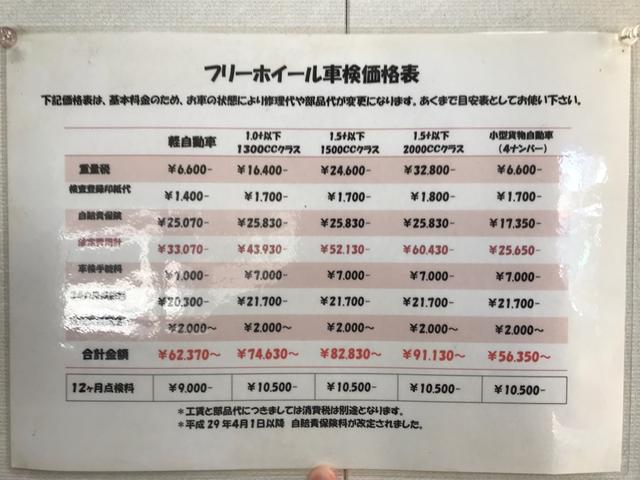 フリーホイール車検価格表
下記価格表は、基本料金のため、お車の状態により修理代や部品代が変更になります。あくまで目安表としてお使い下さい。
軽自動車 1.0t以下 1300CCクラス 1.5t以下 1500CCクラス 1.5t以下 2000CCクラス 小型貨物自動車 (4ナンバー)
重量税 ¥6.600- ¥16.400- ¥24.600- ¥32.800- ¥6.600-
検査登録印紙代 ¥1.400- ¥1.700- ¥1.700- ¥1.800- ¥1.700-
自賠責保険 ¥25.070- ¥25.830- ¥25.830- ¥25.830- ¥17.350-
法定費用計 ¥33.070- ¥43.930- ¥52.130- ¥60.430- ¥25.650-
車検手続料 ¥7.000- ¥7.000- ¥7.000- ¥7.000- ¥7.000-
¥20.300- ¥21.700- ¥21.700- ¥21.700- ¥21.700-
¥2.000～ ¥2.000～ ¥2.000～ ¥2.000～ ¥2.000～
合計金額 ¥62.370～ ¥74.630～ ¥82.830～ ¥91.130～ ¥56.350～
12ヶ月点検料 ¥9.000- ¥10.500- ¥10.500- ¥10.500- ¥10.500-
*工賃と部品代につきましては消費税は別途となります。
*平成29年4月1日以降 自賠責保険料が改定されました。